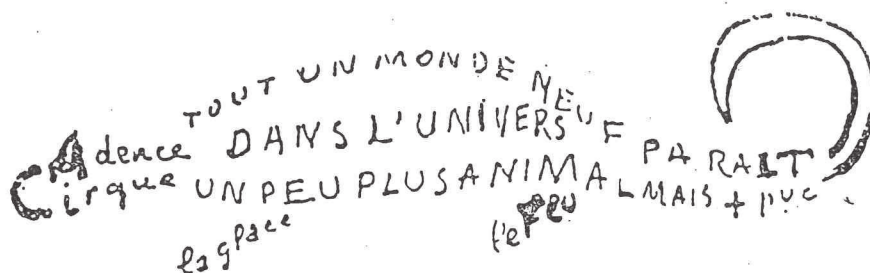 TOUT UN MONDE NEUF PARAIT
Adence DANS L'UNIVERS
Cirque UN PEU PLUS ANIMAL MAIS +
la glace
le Feu